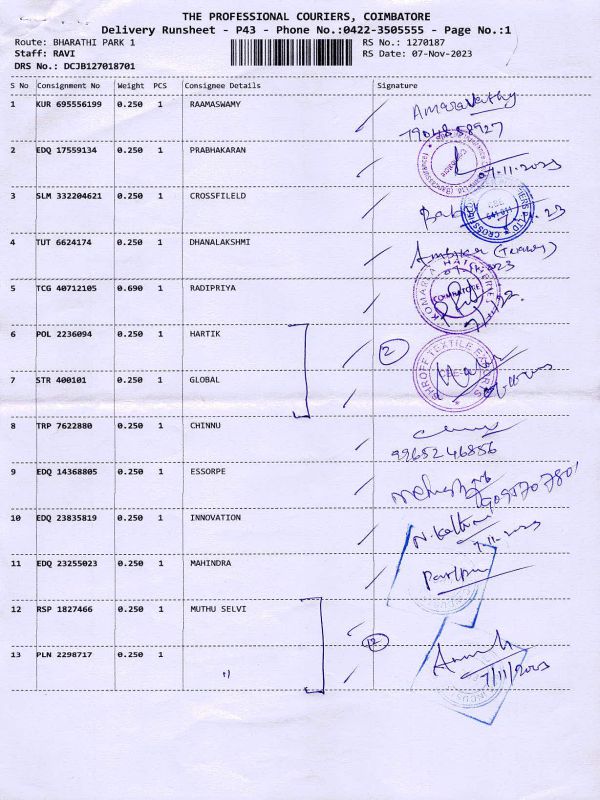 THE PROFESSIONAL COURIERS, COIMBATORE
Delivery Runsheet - P43 - Phone No.:0422-3505555 - Page No.:1
Route: BHARATHI PARK 1 RS No.: 1270187
Staff: RAVI RS Date: 07-Nov-2023
DRS No.: DCJB127018701
S No Consignment No Weight PCS Consignee Details Signature
1 KUR 695556199 0.250 1 RAAMASWAMY Amaravathy
2 EDQ 17559134 0.250 1 PRABHAKARAN
3 SLM 332204621 0.250 1 CROSSFILELD
4 TUT 6624174 0.250 1 DHANALAKSHMI
5 TCG 40712105 0.690 1 RADIPRIYA
COIMBATORE
6 POL 2236094 0.250 1 HARTIK 2
7 STR 400101 0.250 1 GLOBAL
BHROFF TEXTILE
8 TRP 7622880 0.250 1 CHINNU
9965246856
9 EDQ 14368805 0.250 1 ESSORPE
10 EDQ 23835819 0.250 1 INNOVATION
7-11-2023
11 EDQ 23255023 0.250 1 MAHINDRA
12 RSP 1827466 0.250 1 MUTHU SELVI 12
13 PLN 2298717 0.250 1
7/11/2023